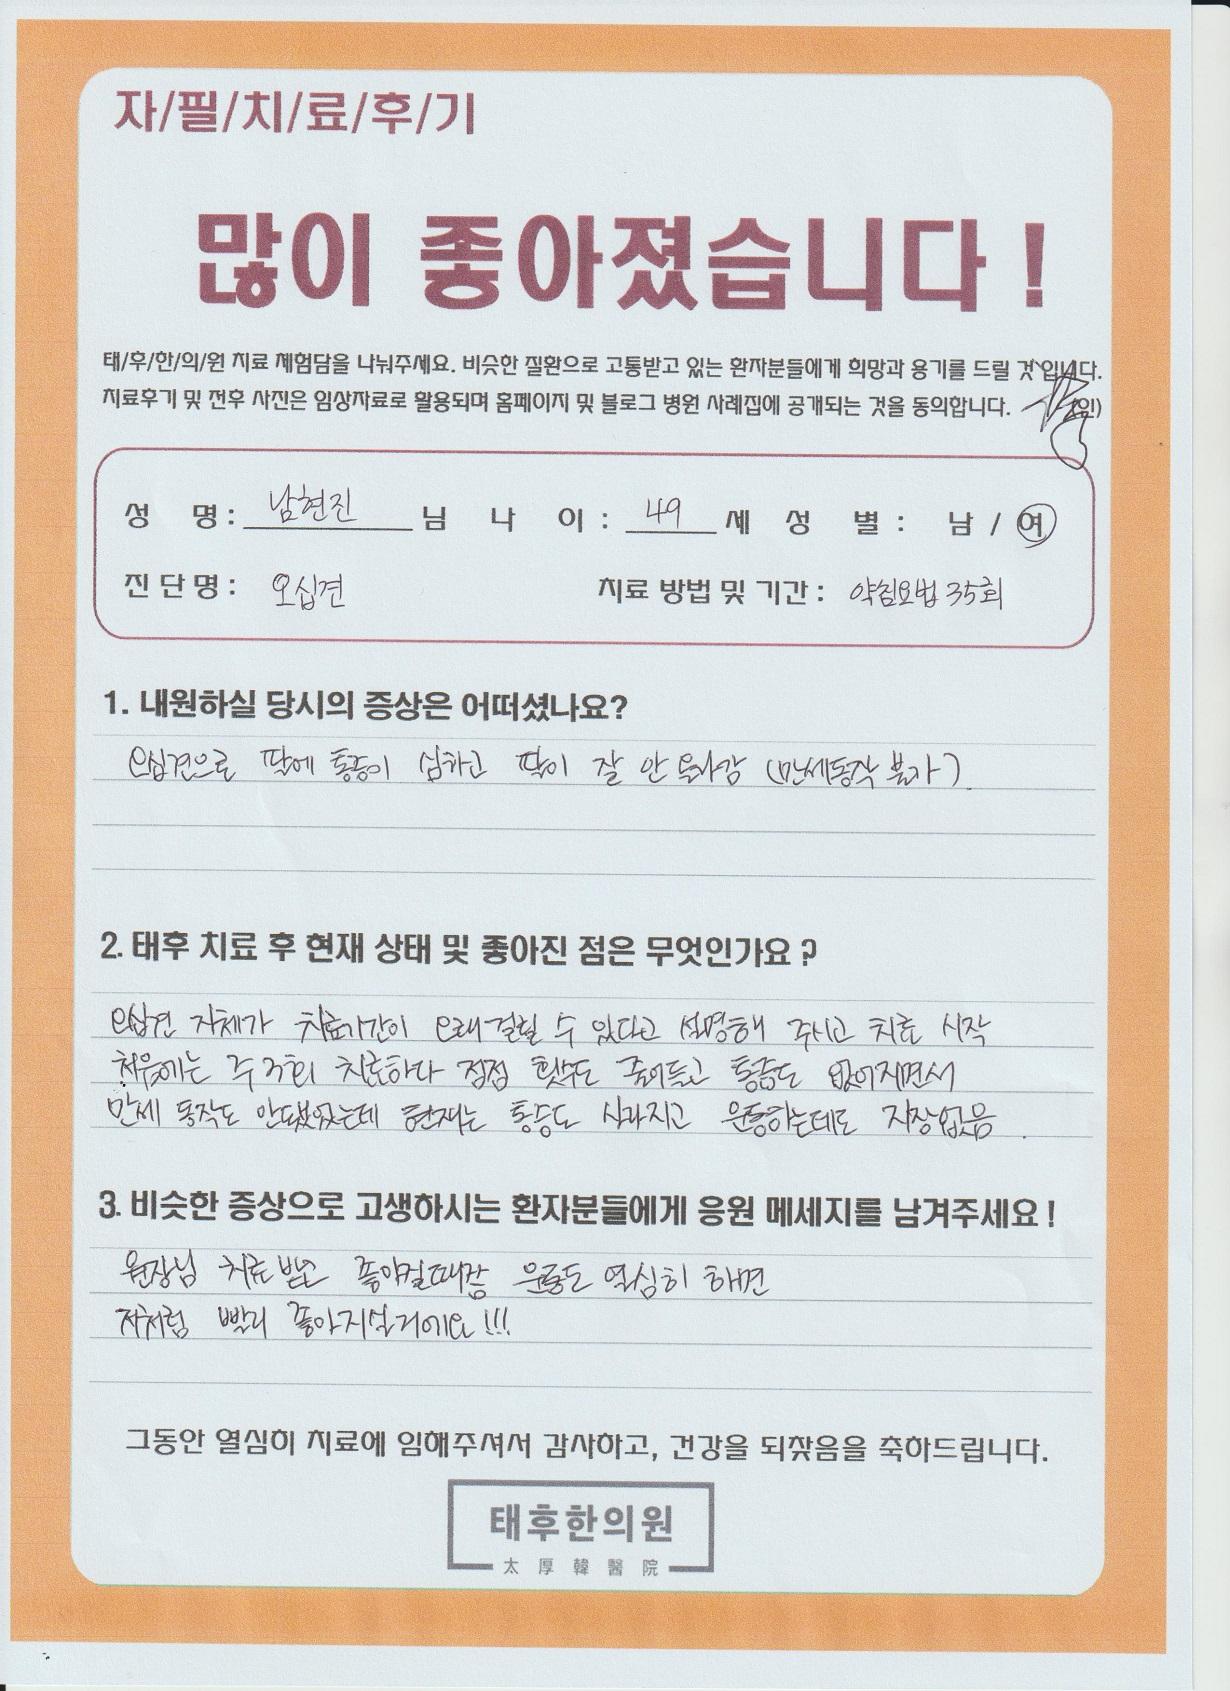 자/필/치/료/후/기
많이 좋아졌습니다!
태/후/한/의/원 치료 체험담을 나눠주세요. 비슷한 질환으로 고통받고 있는 환자분들에게 희망과 용기를 드릴 것 입니다.
치료후기 및 전후 사진은 임상자료로 활용되며 홈페이지 및 블로그 병원 사례집에 공개되는 것을 동의합니다. (인)
성 명 : 남현진 님 나 이 : 49 세 성 별 : 남 / 여
진 단 명 : 오십견 치료 방법 및 기간 : 약침요법 35회
1. 내원하실 당시의 증상은 어떠셨나요?
오십견으로 팔에 통증이 심하고 팔이 잘 안 올라감 (만세동작 불가).
2. 태후 치료 후 현재 상태 및 좋아진 점은 무엇인가요?
오십견 자체가 치료기간이 오래걸릴 수 있다고 설명해 주시고 치료 시작
처음에는 주 3회 치료하다 점점 횟수도 줄어들고 통증도 없어지면서
만세 동작도 안됐었는데 현재는 통증도 사라지고 운동하는데도 지장없음.
3. 비슷한 증상으로 고생하시는 환자분들에게 응원 메세지를 남겨주세요!
원장님 치료 받고 좋아질때쯤 운동도 열심히 하면
저처럼 빨리 좋아지실거에요!!!
그동안 열심히 치료에 임해주셔서 감사하고, 건강을 되찾음을 축하드립니다.
태후한의원
太厚韓醫院